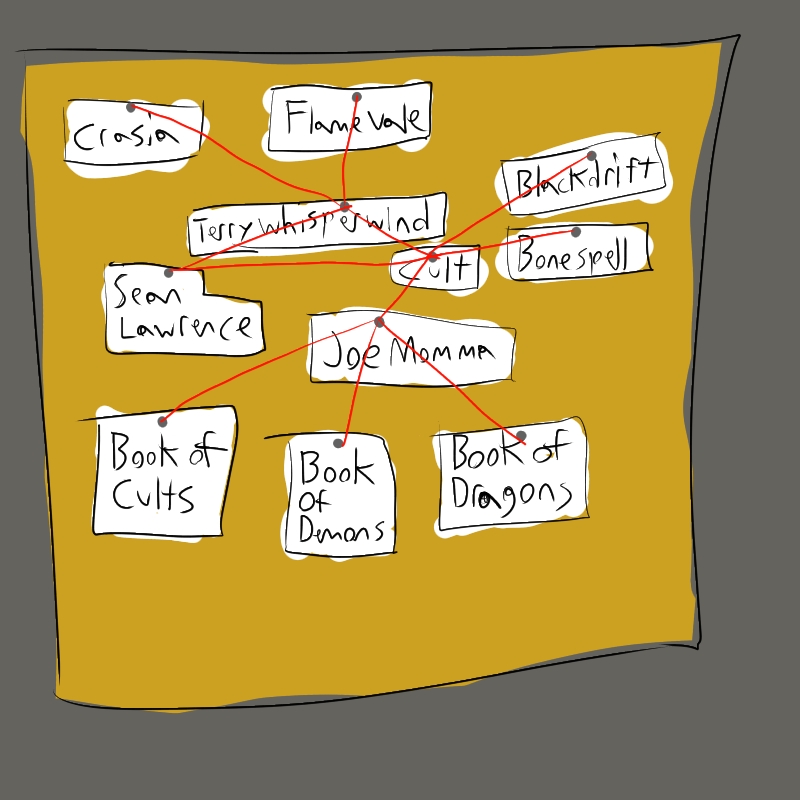 Crasia
Flamevale
Blackdrift
Terry Whisperwind
Bonespell
Cult
Sean
Lawrence
Joe Momma
Book of
Cults
Book
of
Demons
Book of
Dragons